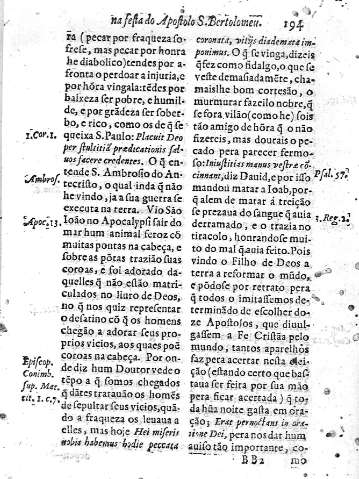 na festa do Apostolo S. Bertolomeu. 194
ra (pecar por fraqueza so-
frese, mas pecar por honra
he diabolico) tendes por a-
fronta o perdoar a injuria, e
por hõra vingala: tẽdes por
baixeza ser pobre, e humil-
de, e por grãdeza ser sober-
bo, e rico, como os de q̃ se
1. Cor. 1.
queixa S. Paulo: Placuit Deo
per stultitiã prædicationis sal-
uos facere credentes. O q̃ en-
Ambros.
tende S. Ambrosio do An-
tecristo, o qual inda q̃ não
he vindo, ja a sua guerra se
executa na terra. Vio São
Apoc. 13.
Ioão no Apocalypsi sair do
mar hum animal feroz cõ
muitas pontas na cabeça, e
sobre as põtas trazião suas
coroas, e foi adorado da-
quelles q̃ não estão matri-
culados no liuro de Deos,
no q̃ nos quiz representar
o desatino cõ q̃ os homens
chegão a adorar seus pro-
prios vicios, aos quaes poẽ
Episcop.
Conimb.
sup. Mat
tit. 1. c. 7.
coroas na cabeça. Por on-
de diz hum Doutor vede o
tẽpo a q̃ somos chegados
q̃ dãtes tratauão os homẽs
de sepultar seus vicios, quã-
do a fraqueza os leuaua a
elles, mas hoje Hei miseris
nobis habemus hodie peccata
coronata, vitijs diademata im-
ponimus. O q̃ se vinga, dizeis
q̃ fez como fidalgo, o que se
veste demasiadamẽte, cha-
mais lhe bom cortesão, o
murmurar fazeilo nobre, q̃
se fora vilão (como he) sois
tão amigo de hõra q̃ o não
fizereis, mas dourais o pe-
cado pera parecer fermo-
so: Iniustitias manus vestræ cõ-
Psal. 57.
cinnant, diz Dauid, e por isso
mandou matar a Ioab, por-
q̃ alem de matar á treição
1. Reg. 2.
se prezaua do sangue q̃ auia
derramado, e o trazia no
tiracolo, honrandose mui-
to do mal q̃ auia feito. Pois
vindo o Filho de Deos a
terra a reformar o mũdo,
e põdose por retrato pera
q̃ todos o imitassemos de-
terminãdo de escolher do-
ze Apostolos, que diuul-
gassem a Fe Cristãa pelo
mundo, tantos aparelhos
faz pera acertar nesta elei-
ção (estando certo que bas-
taua ser feita por sua mão
pera ficar acertada) q̃ to-
da hũa noite gasta em ora-
ção; Erat pernoctans in ora-
tione Dei, pera nos dar hum
auiso tão importante, co-
BB2 mo